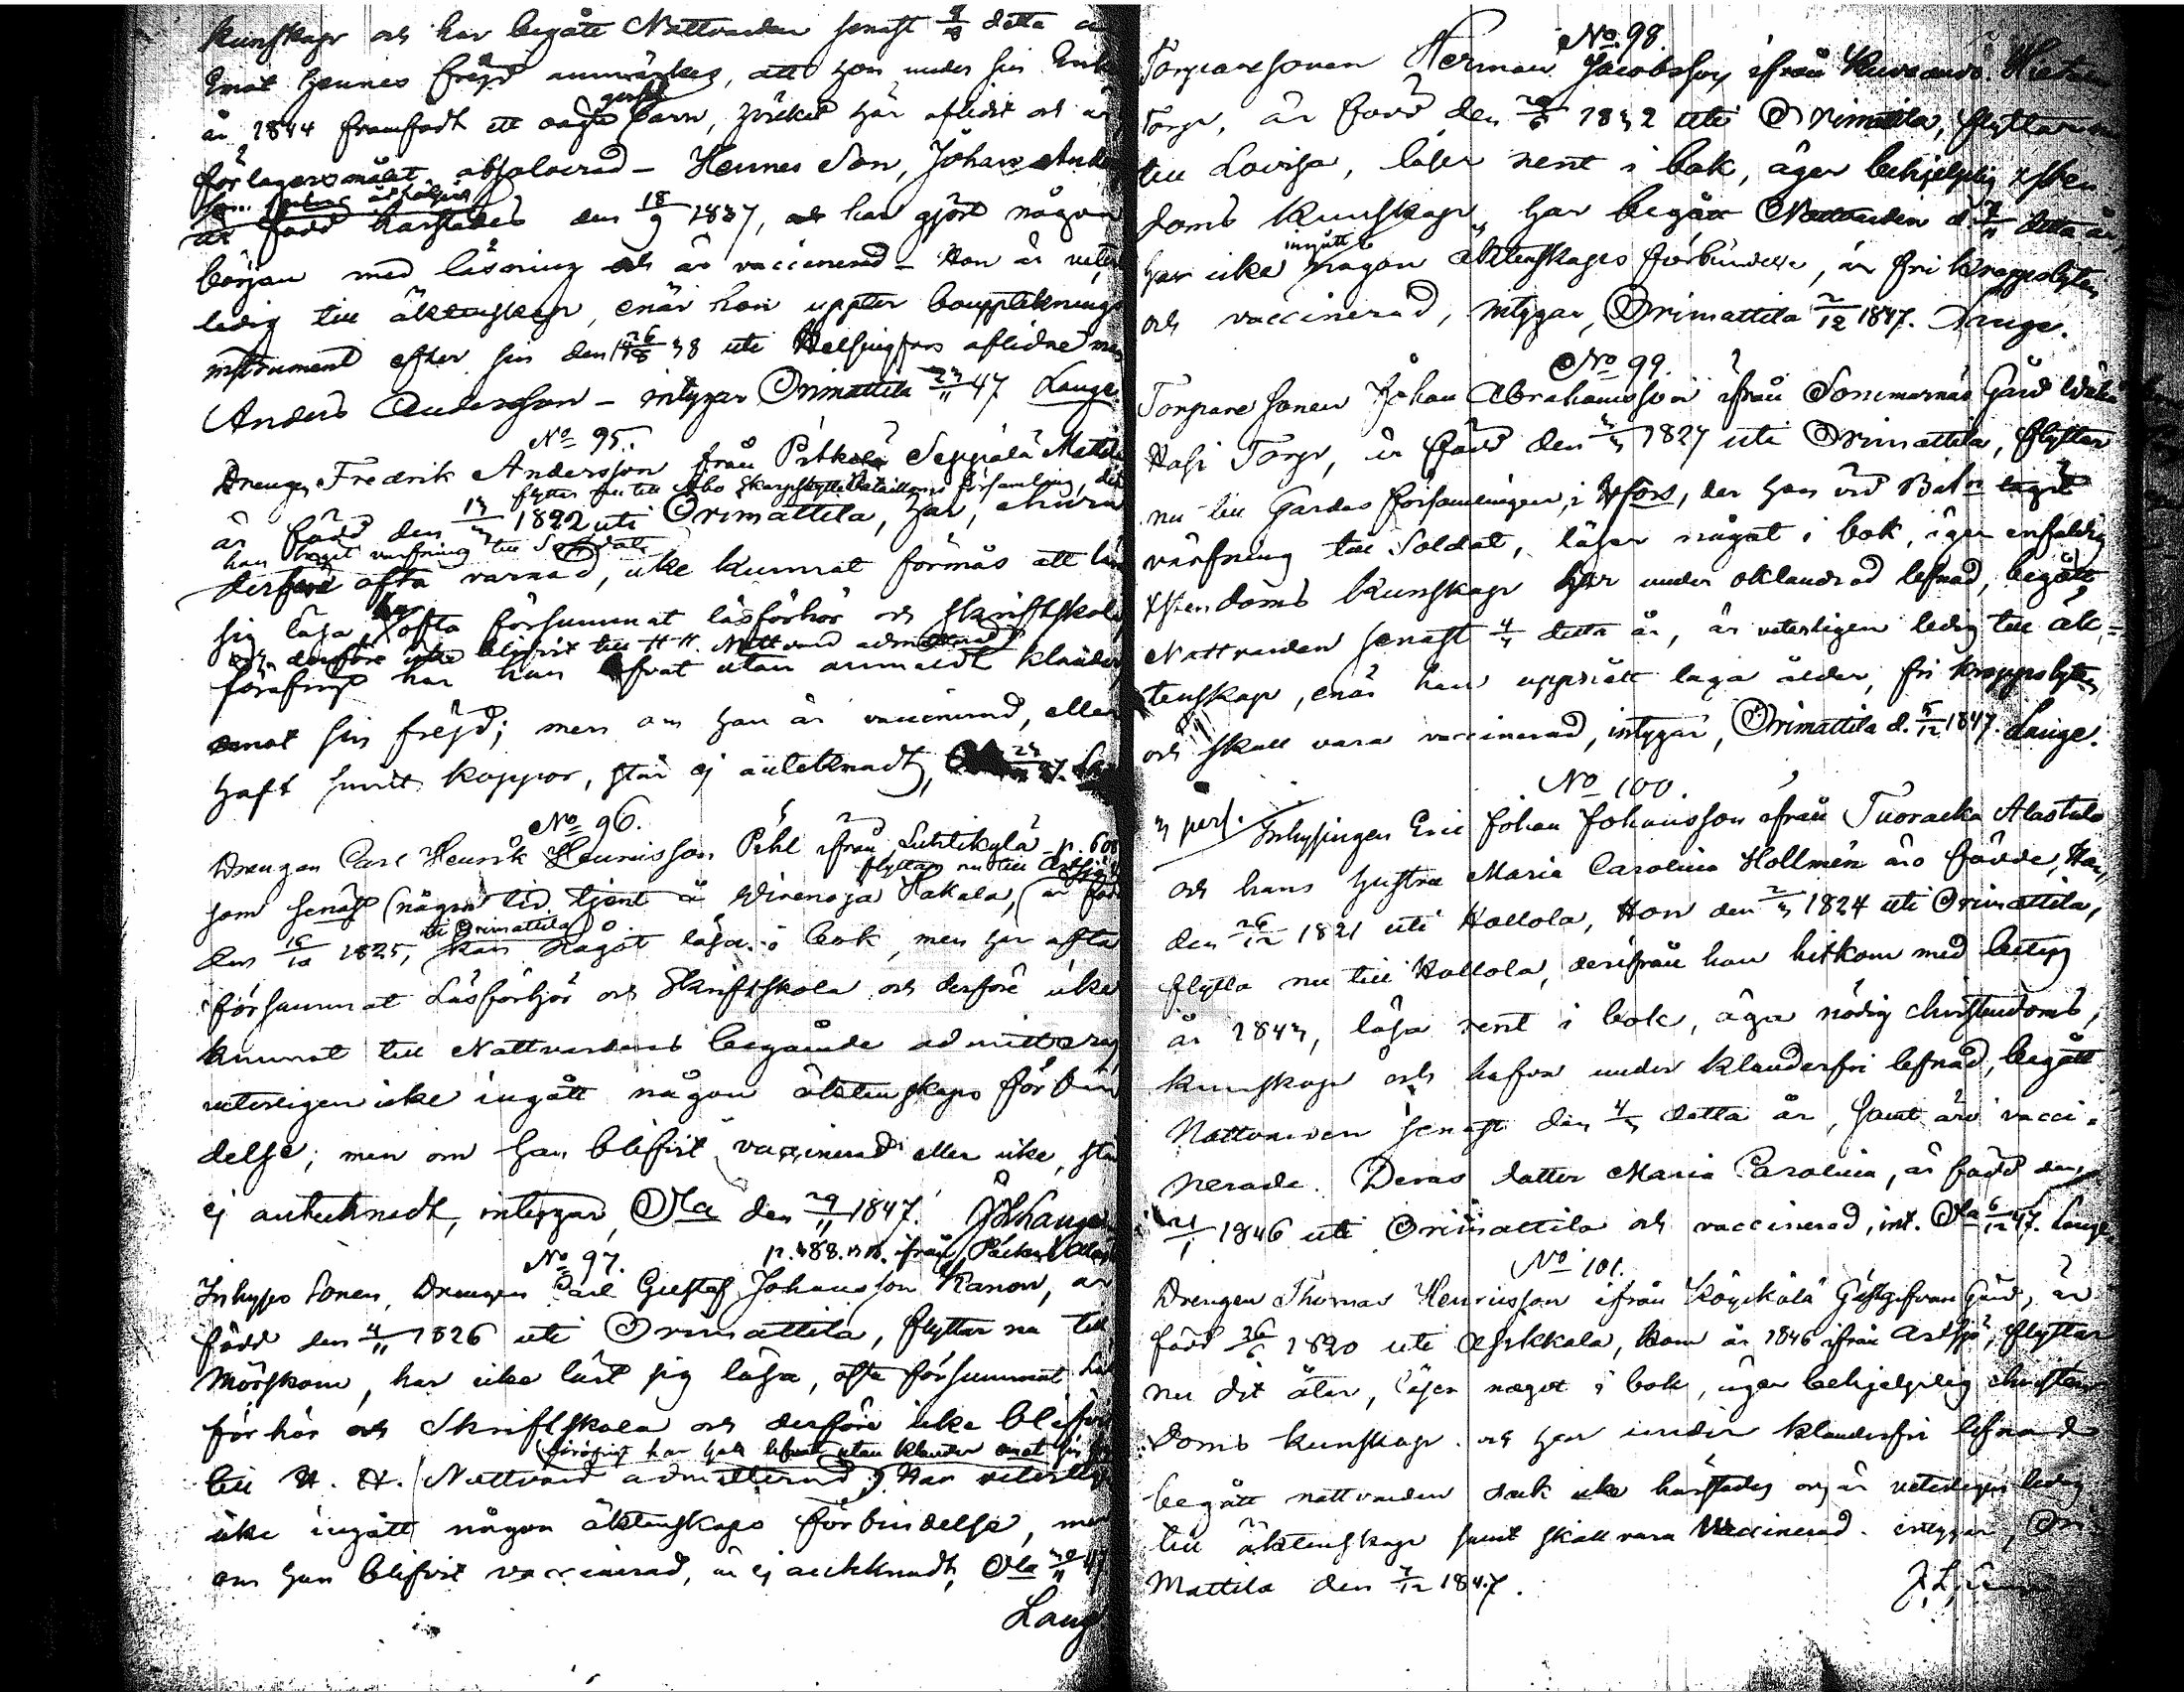 kunskap och har begått Nattvarden senast detta
Emot hennes frejd anmärkes, att hon under sin Enke
år 1844 framfödt ett oägta barn, hvilket har aflidit och är
för lägersmålet absolverad – Hennes Son, Johan
är född härstädes den 18/9 1837, har gjort någon
början med läsning och är vaccinerad – Hon är veter
ledig till äktenskap, enär hon uppter bouppteknings
instrument efter sin den 26/8 38 uti Helsingfors aflidne man
Anders Andersson – intygar Orimattila 23/11 47 Lange
No 95.
Drengen Fredrik Andersson från Pitkälä Seppälä Mattila
flyttar nu till Åbo Skarpskytte Bataillons församling, der
är född den 13/3 1822 uti Orimattila, har, ehuru
han tagit värfning till Soldat
derföre ofta varnad, icke kunnat förmås att lära
sig läsa, ofta försummat läsförhör och Skriftskola
och derföre icke blifvit till H. H. Nattvard admitterad
föröfrigt har han lefvat utan anmäldt klander
emot sin frejd; men om han är vaccinerad, eller
haft koppor, står ej antecknadt,
No 96.
Drengen Carl Henrik Henriksson Pihl ifrån Luhtikylä p. 608
flyttar nu till Artsjö
som senast någon tid tjent å Virenoja Hakala, är född
uti Orimattila
den 16/10 1825, kan något läsa i bok, men har ofta
försummat Läsförhör och Skriftskola och derföre icke
kunnat till Nattvardens begående admitteras
veterligen icke ingått någon äktenskaps förbin
delse; men om han blifvit vaccinerad eller icke, står
ej antecknadt, intygar, Ola den 29/11 1847. Lange
No 97. p. 488. ifrån
Inhyses Sonen, Drengen Carl Gustaf Johansson Kanon, är
född den 4/11 1826 uti Orimattila, flyttar nu till
Mörskom, har icke lärt sig läsa, ofta försummat läs
förhör och Skriftskola och derföre icke blifvit
föröfrigt har han lefvat utan klander emot sin
till H. H. Nattvard admitterad. Har veterligen
icke ingått någon äktenskaps förbindelse, men
om han blifvit vaccinerad, är ej antecknadt, Ola 30/11 47
Lange
No 98.
Torparesonen Herman Jacobsson ifrån
Torp, är född den 1832 uti Orimattila, flyttar nu
till Lovisa, läser rent i bok, äger behjelplig xsten
doms kunskap, har begått Nattvarden d. detta år,
ingått
har icke någon äktenskaps förbindelse, är fri kroppslyten
och vaccinerad, intygar, Orimattila 2/12 1847. Lange.
No 99.
Torparesonen Johan Abrahamsson ifrån Sommarnäs Gård
Hasi Torp, är född den 1827 uti Orimattila, flyttar
nu till Gardes församlingen i Hfors, der han vid Baln tagit
värfning till Soldat, läser något i bok, äger enfaldig
xstendoms kunskap har under oklandrad lefnad, begått
Nattvarden senast detta år, är veterligen ledig till äk-
tenskap, enär han uppnått laga ålder, fri kroppslyten
och skall vara vaccinerad, intygar, Orimattila d. 5/12 1847. Lange.
No 100.
3 pers. Inhysingen Eric Johan Johansson ifrån Tuorakka Alastalo
och hans hustru Maria Carolina Hollmén äro födde, Han
den 26/12 1821 uti Hollola, Hon den 2/3 1824 uti Orimattila,
flytta nu till Hollola, derifrån han hitkom med betyg
år 1843, läsa rent i bok, äga nödig christendoms,
kunskap och hafva under klanderfri lefnad, begått
Nattvarden senast den detta år, samt äro vacci-
nerade. Deras dotter Maria Carolina, är född den
21/1 1846 uti Orimattila och vaccinerad, int. Ola 6/12 47. Lange
No 101.
Drengen Thomas Henriksson ifrån Köyskälä Gästgifvare Gård, är
född 26/6 1820 uti Asikkala, kom år 1846 ifrån Artsjö, flyttar
nu dit åter, läser något i bok, äger behjelplig christen
doms kunskap och har under klanderfri lefnad
begått nattvarden dock icke härstädes och är veterligen ledig
till äktenskap samt skall vara vaccinerad, intygar, Ori
Mattila den 7/12 1847.